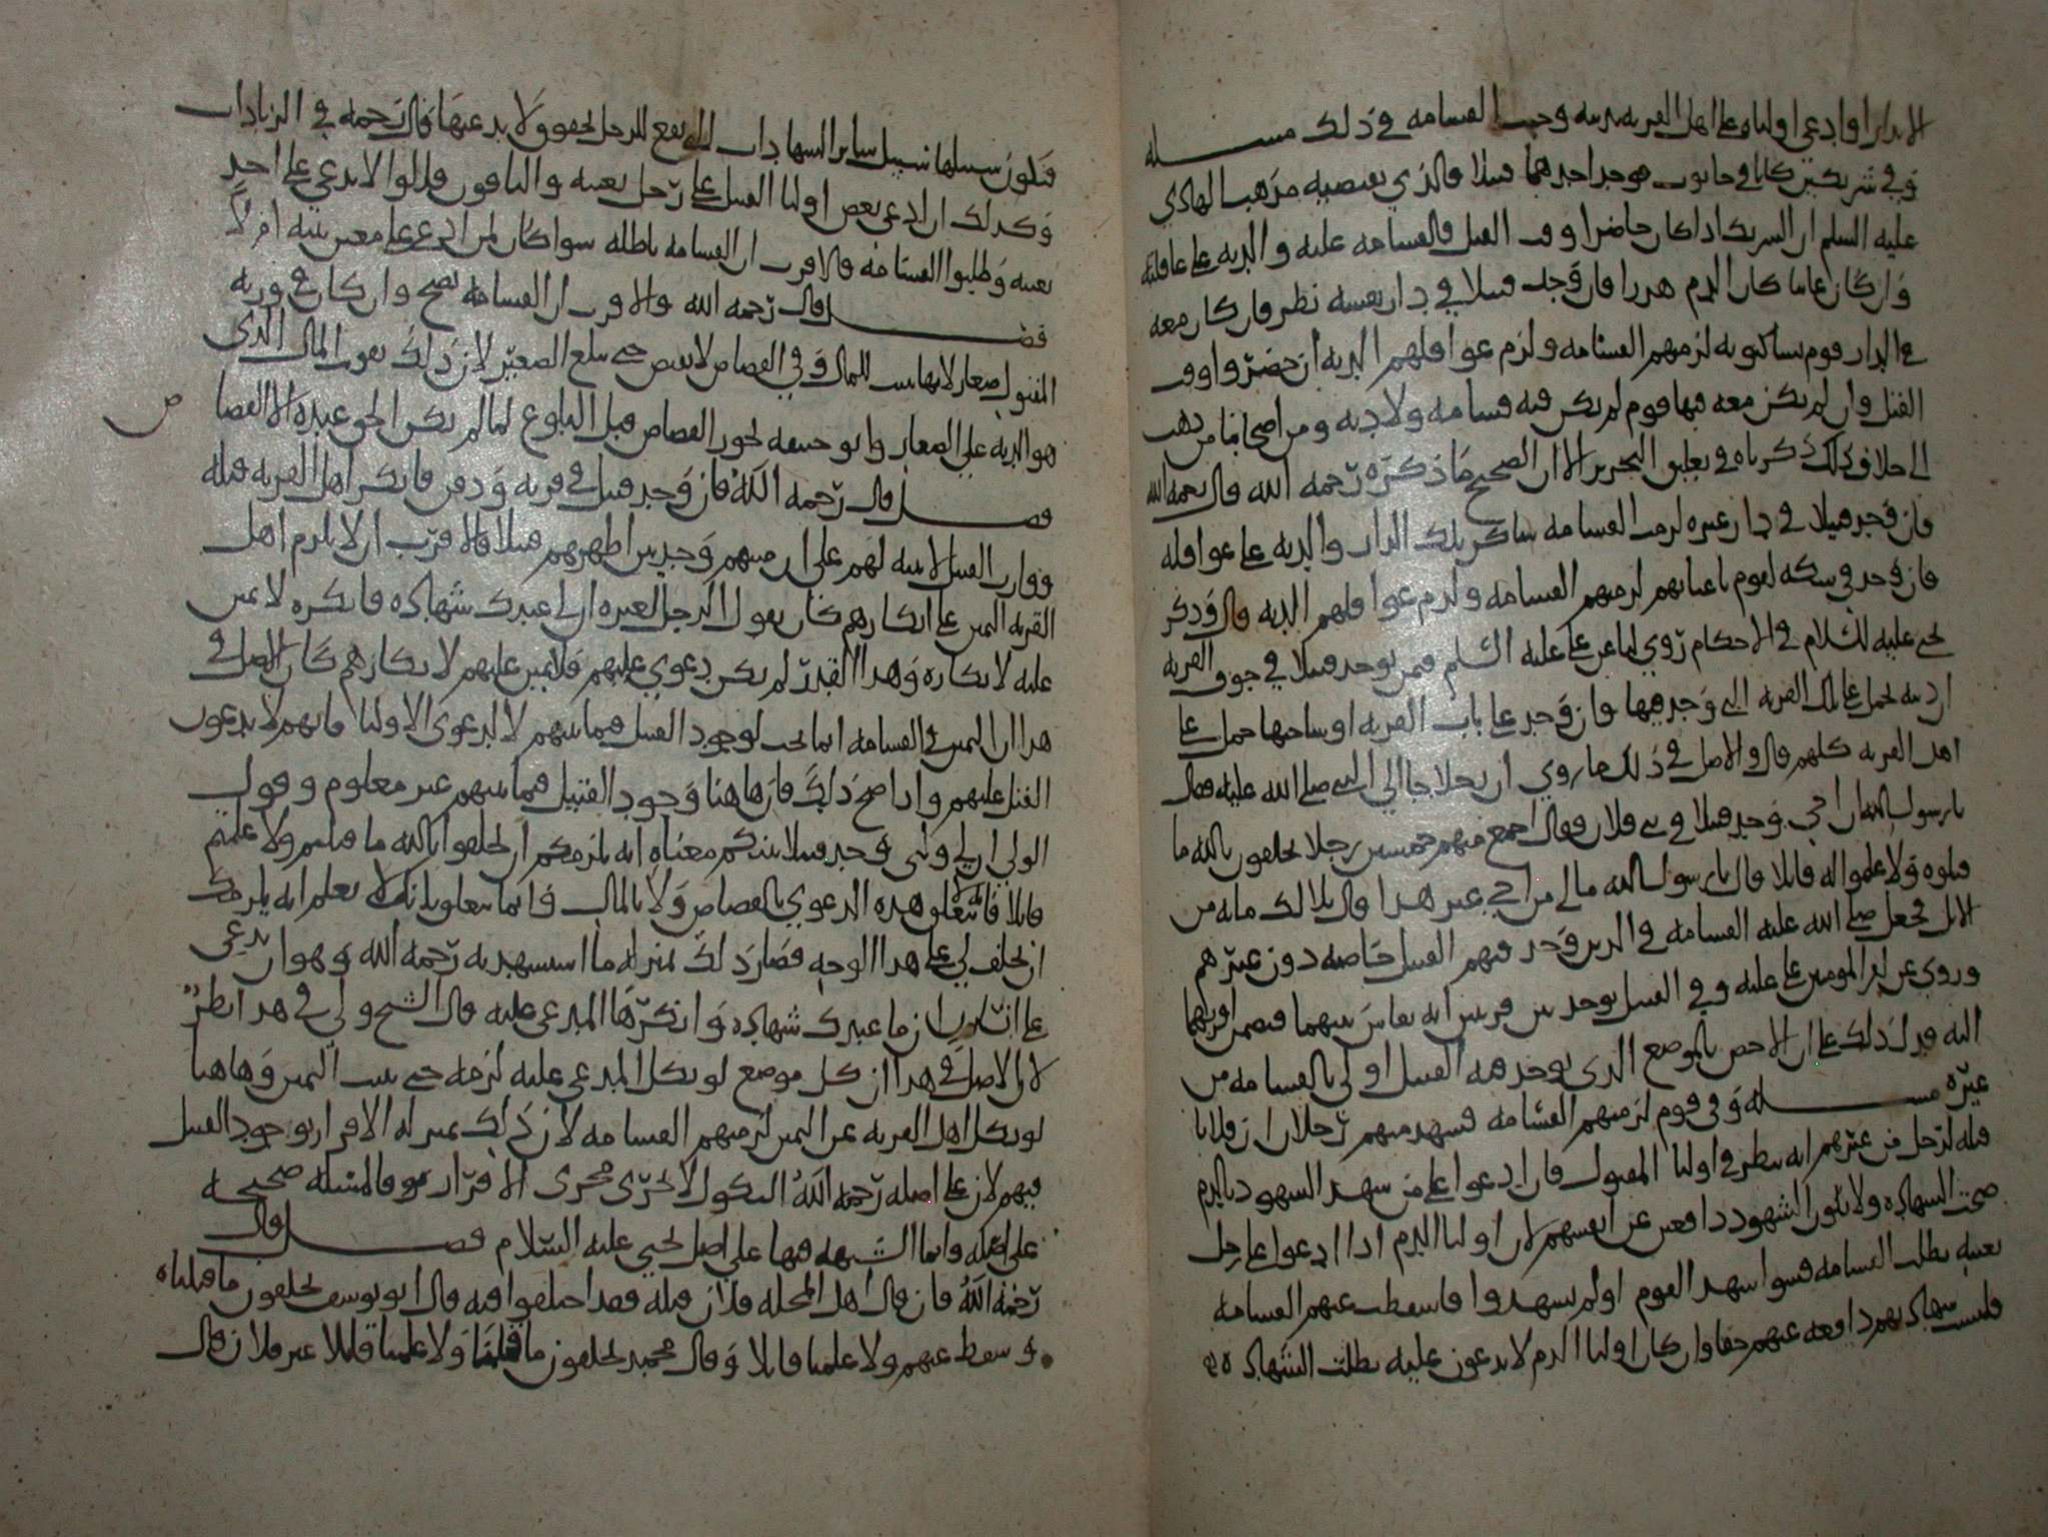 الابدان اوادعى اولياه على اهل القريه وجبت القسامه في ذلك مسله
وفي شريكين كانا في حانوت فوجد احدهما قتيلا فالذي يقتضيه مذهب الهادي
عليه السلم ان الشريك اذا كان حاضرا وقت القتل فالقسامه عليه والديه على عاقلته
وان كان غايبا كان الدم هدرا فان وجد قتيلا في دار نفسه نظر فان كان معه
في الدار قوم يساكنونه لزمهم القسامه ولزم عواقلهم الديه ان حضروا وقت
القتل وان لم يكن معه فيها قوم لم يكن فيه قسامه ولا ديه ومن اصحابنا من ذهب
الى خلاف ذلك ذكرناه في تعليق التحرير الا ان الصحيح ما ذكره رحمه الله قال رحمه الله
فان وجد قتيلا في دار غيره لزمت القسامه ساكن تلك الدار والديه على عواقله
فان وجد في سكه لقوم باعيانهم لزمتهم القسامه ولزم عواقلهم الديه قال وذكر
يحيى عليه السلام في الاحكام روي لنا عن علي عليه السلم فيمن يوجد قتيلا في جوف القريه
ان ديته تحمل على تلك القريه التي وجد فيها وان وجد على باب القريه او ساحتها حمل على
اهل القريه كلهم قال والاصل في ذلك ما روي ان رجلا جا الى النبي صلى الله عليه فقال
يا رسول الله ان اخي وجد قتيلا في بني فلان فقال اجمع منهم خمسين رجلا يحلفون بالله ما
قتلوه ولا علموا له قاتلا قال يا رسول الله مالي من اخي غير هذا قال بلا لك مايه من
الابل فجعل صلى الله عليه القسامه في الذين وجد فيهم القتيل خاصه دون غيرهم
وروي عن امير المومنين علي عليه وفي القتيل يوجد بين قريتين انه يقاس بينهما فيضمن اقربهما
اليه فدل ذلك على ان الاخص بالموضع الذي يوجد فيه القتيل اولى بالقسامه من
غيره مسله وفي قوم لزمتهم القسامه فشهد منهم رجلان ان فلانا
قتله لرجل من غيرهم انه ينظر في اوليا المقتول فان ادعوا على من شهد الشهود بالدم
صحت الشهاده ولا يكون الشهود دافعين عن انفسهم لان اوليا الدم اذا ادعوا على رجل
بعينه بطلت القسامه فسوا شهد القوم او لم يشهدوا فاسقطت عنهم القسامه
فليست شهادتهم دافعه عنهم حقا وان كان اوليا الدم لا يدعون عليه بطلت الشهاده
فتكون سبيلها سبيل ساير الشهادات التي تقع للرجل بحقوق ولا يدعيها قال رحمه في الزيادات
وكذلك ان ادعى بعض اوليا القتيل على رجل بعينه والباقون قالوا لا ندعي على احد
بعينه وطلبوا القسامه فالاقرب ان القسامه باطله سوا كان لمن ادعى على معين بينه ام لا
فصل قال رحمه الله والاقرب ان القسامه تصح وان كان في ورثه
المقتول صغار لانها تثبت للمال وفي القصاص لا يقتص حتى يبلغ الصغير لان ذلك يفوت المال الذي
هو الديه على الصغار وابو حنيفه يجوز القصاص قبل البلوغ لما لم يكن الحق عنده الا القصاص
فصل قال رحمه الله فان وجد قتيل في قريه ودفن فانكر اهل القريه قتله
ووارث القتيل لا بينه لهم على ان ميتهم وجد بين اظهرهم قتيلا فالاقرب ان لا يلزم اهل
القريه اليمين على انكارهم كان يقول الرجل لغيره ان لي عندك شهاده فانكره لا يمين
عليه لانكاره وهذا القدر لم يكن دعوى عليهم فلا يمين عليهم لانكارهم كان الاصل في
هذا ان اليمين في القسامه انما تجب لوجود القتيل فيما بينهم لا لدعوى الاوليا فانهم لا يدعون
القتل عليهم واذا صح ذلك فان هاهنا وجود القتيل فيما بينهم غير معلوم وقول
الولي ان لي وليي وجد قتيلا بينكم معناه انه يلزمكم ان تحلفوا بالله ما قتلتم ولا علمتم
قاتلا فلا تتعلق هذه الدعوى بالقصاص ولا بالمال فانما يتعلق بانك لا تعلم انه يلزمك
ان تحلف لي على هذا الوجه فصار ذلك بمنزله ما استشهد به رحمه الله وهو ان يدعي
على انسان ان ما عندك شهاده وانكرها المدعى عليه قال الشيخ ولي في هذا نظر
لان الاصل في هذا ان كل موضع لو نكل المدعى عليه لزمه حق ثبت اليمين وهاهنا
لو نكل اهل القريه عن اليمين لزمتهم القسامه لان ذلك بمنزله الاقرار بوجود القتيل
فيهم لان على اصله رحمه الله النكول لا يجري مجرى الاقرار فالمسله صحيحه
على اصله وانما الشبهه فيها على اصل يحيى عليه السلام فصل قال
رحمه الله فان قال اهل المحله فلان قتله فقد اختلفوا فيه قال ابو يوسف يحلفون ما قتلناه
وسقط عنهم ولا علمنا قاتلا وقال محمد يحلفون ما قتلنا ولا علمنا قاتلا غير فلان قال